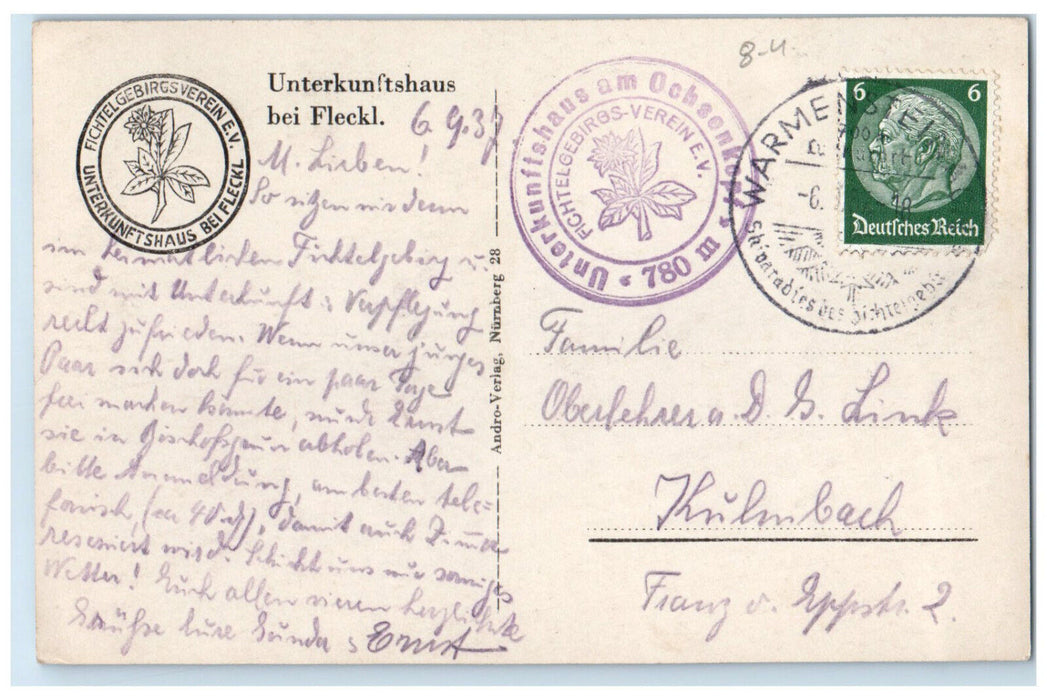 8-4
FICHTELGEBIRGSVEREIN E.V.
UNTERKUNFTSHAUS BEI FLECKL
Unterkunftshaus
bei Fleckl.
6.9.37
M. Lieben!
So sitzen wir denn
im Fichtelgebirg u.
sind mit Unterkunft u. Verpflegung
recht zufrieden. Wenn unser junges
Paar sich doch für ein paar Tage
frei machen könnte, würde Ernst
sie in Bischofsgrün abholen. Aber
bitte Anmeldung, am besten tele-
fonisch, (ca 40 d), damit auch Zimmer
reserviert wird. Schickt uns nur sonniges
Wetter! Euch allen vieren herzlichste
Grüße Eure Gunda u. Ernst
Andro-Verlag, Nürnberg 28
Unterkunftshaus am Ochsenkopf
780 m
FICHTELGEBIRGS-VEREIN E.V.
WARMENSTEI
-6.
10
Skiparadies des Fichtelgebi
6 6
Deutsches Reich
Familie
Oberlehrer a. D. G. Link
Kulmbach
Franz v. Eppstr. 2.